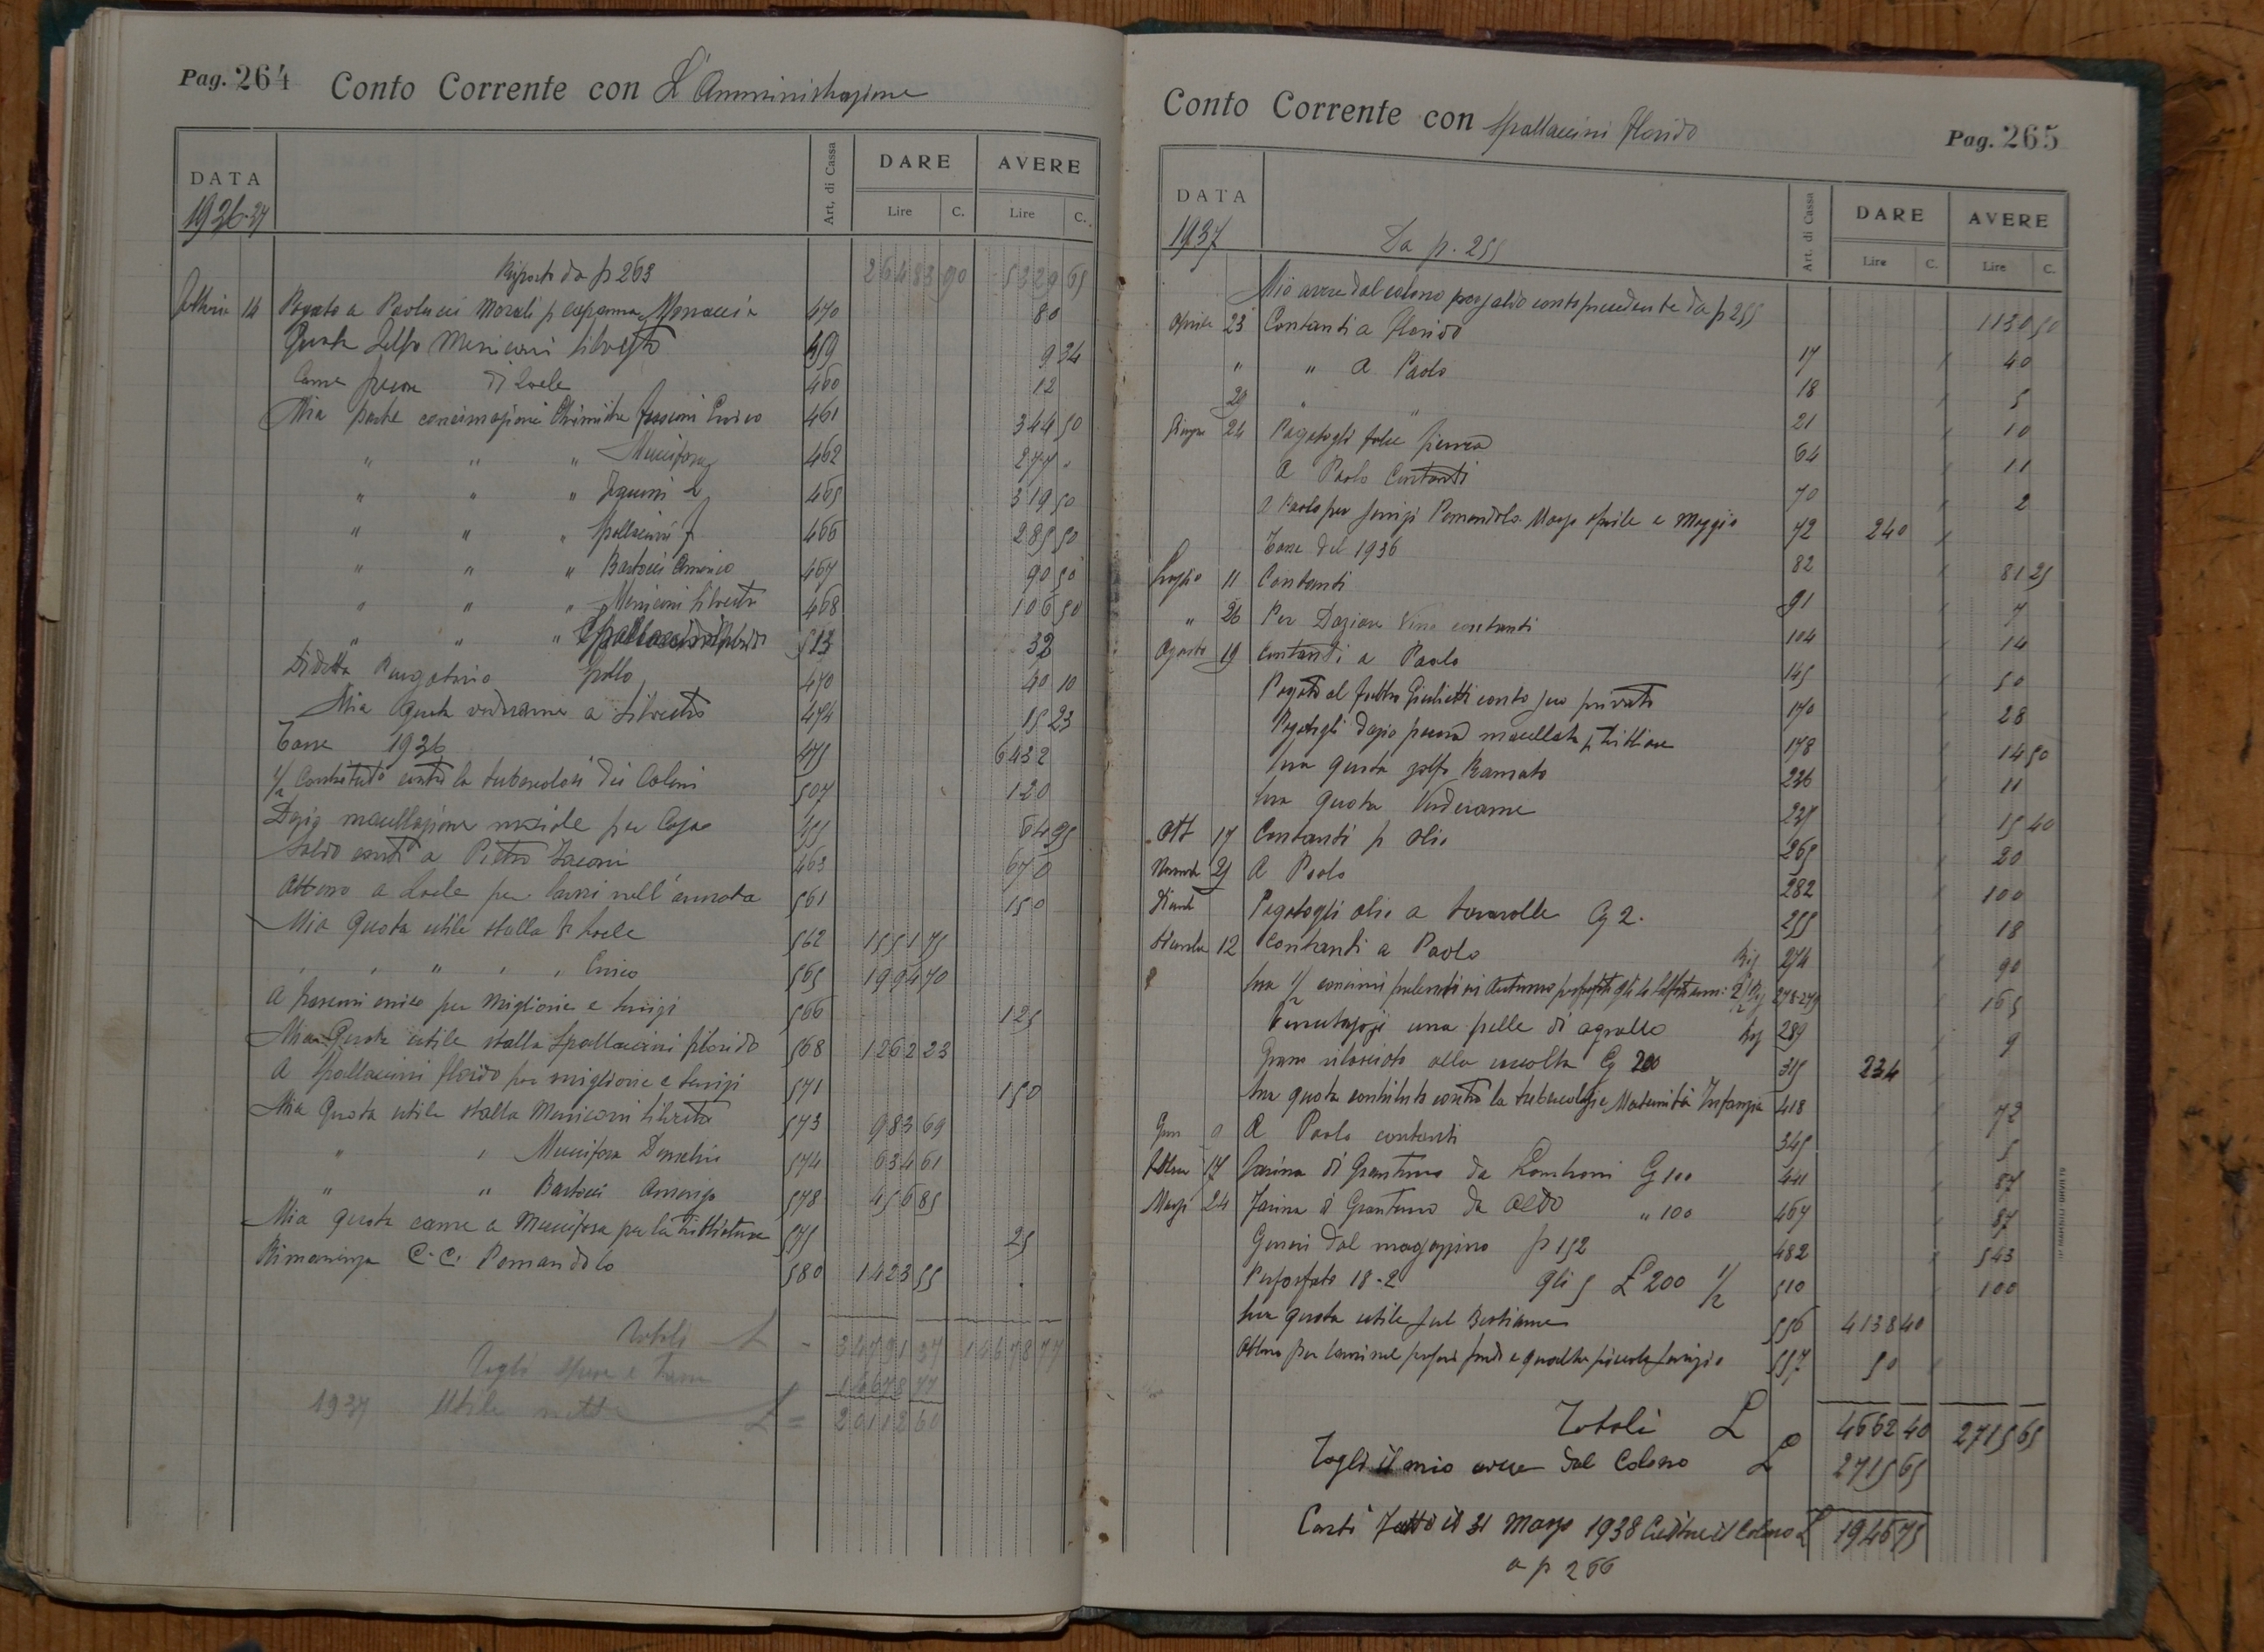 Pag. 264 Conto Corrente con L'Amministrazione
DATA Art. di Cassa DARE AVERE
1936-37 Lire C. Lire C.
Riporto da p 263 26483 90 5229 65
14 Pagato a Paolucci Morali p capanna Monaccia 470 80
Quota Zolfo Meniconi Silvestro 459 9 34
Carne pecora di Zoele 460 12
Mia parte concimazione Chimiche Frascini Enrico 461 344 50
" " " Muccifora 462 277 "
" " " 465 319 50
" " " Spallaccini f 466 285 50
" " " Bartocci Americo 467 90 50
" " " Meniconi Silvestro 468 106 50
" " " 513 32
470 40 10
Mia Quota verderame a Silvestro 474 15 23
Tasse 1936 475 6432
1/2 Contributo contro la tubercolosi dei Coloni 507 120
Dazio macellazione maiale per Casa 64 95
Saldo conti a Pietro 463 670
561 150
Mia Quota utile stalla di Zoele 562 1551 75
" " " " " Enrico 565 1994 70
A Frascini enrico per Migliorie e servizi 566 125
Mia Quota utile stalla Spallaccini florido 568 1262 23
A Spallaccini florido per migliorie e servizi 571 150
Mia Quota utile stalla Meniconi Silvestro 573 983 69
" " Muccifora Domenico 574 634 61
" " Bartocci Amerigo 578 456 85
Mia quota carne a Muccifora per la trebbiatura 575 25
Rimanenza C.C. Pomandolo 580 1423 55
Totali L - 34791 37 14678 77
Togli spese e tasse 14678 77
1937 Utile netto L = 20112 60
Conto Corrente con Spallaccini Florido Pag. 265
DATA Art. di Cassa DARE AVERE
1937 Da p. 255 Lire C. Lire C.
Mio avere dal colono per saldo conto precedente da p 255 1130 50
Aprile 23 Contanti a Florido 17 40
" " a Paolo 18 5
29 " " 21 10
Giugno 24 Pagatogli 64 11
A Paolo Contanti 70 2
A Paolo per servizi Pomandolo Marzo Aprile e Maggio 72 240
Tasse del 1936 82 81 25
Luglio 11 Contanti 91 7
" 26 Per Daziare Vino contanti 104 14
Agosto 19 Contanti a Paolo 145 50
Pagato al Giulietti conto suo privato 170 28
Pagatogli dazio pecora macellata p trebbiare 178 14 50
Sua quota zolfo Ramato 226 11
Sua quota Verderame 225 15 40
Ott 17 Contanti p olio 265 20
Novemb 21 A Paolo 282 100
Pagatogli olio a Cg 2. 255 18
12 Contanti a Paolo 274 90
278-279 165
una pelle di agnello 289 9
Grano rilasciato alla raccolta Cg 200 315 234
Sua quota contributo contro la tubercolosi e Maternità Infanzia 418 72
Genn 9 A Paolo contanti 345 5
17 Farina di Granturco da Cg 100 441 87
Marzo 24 Farina di Granturco da Aldo " 100 467 87
Generi dal magazzino p 152 482 543
Perfosfato 18-2 Qli 5 £ 200 1/2 510 100
Sua quota utile sul Bestiame 556 4138 40
557 50
Totali L 4662 40 2715 65
Togli il mio avere dal Colono L 2715 65
Conti Fatti il 31 Marzo 1938 Creditore il Colono L 1946 75
a p 266